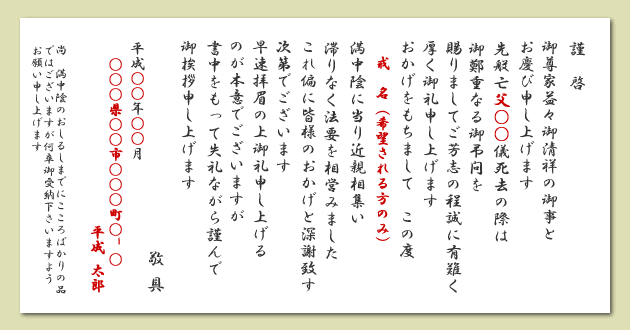 謹啓
御尊家益々御清祥の御事と
お慶び申し上げます
先般亡父〇〇儀死去の際は
御鄭重なる御弔問を
賜りましてご芳志の程誠に有難く
厚く御礼申し上げます
おかげをもちまして この度
戒 名（希望される方のみ）
満中陰に当り近親相集い
滞りなく法要を相営みました
これ偏に皆様のおかげと深謝致す
次第でございます
早速拝眉の上御礼申し上げる
のが本意でございますが
書中をもって失礼ながら謹んで
御挨拶申し上げます
敬具
平成〇〇年〇〇月
〇〇〇県〇〇市〇〇〇町〇-〇
平成 太郎
尚 満中陰のおしるしまでにこころばかりの品
ではございますが何卒御受納下さいますよう
お願い申し上げます